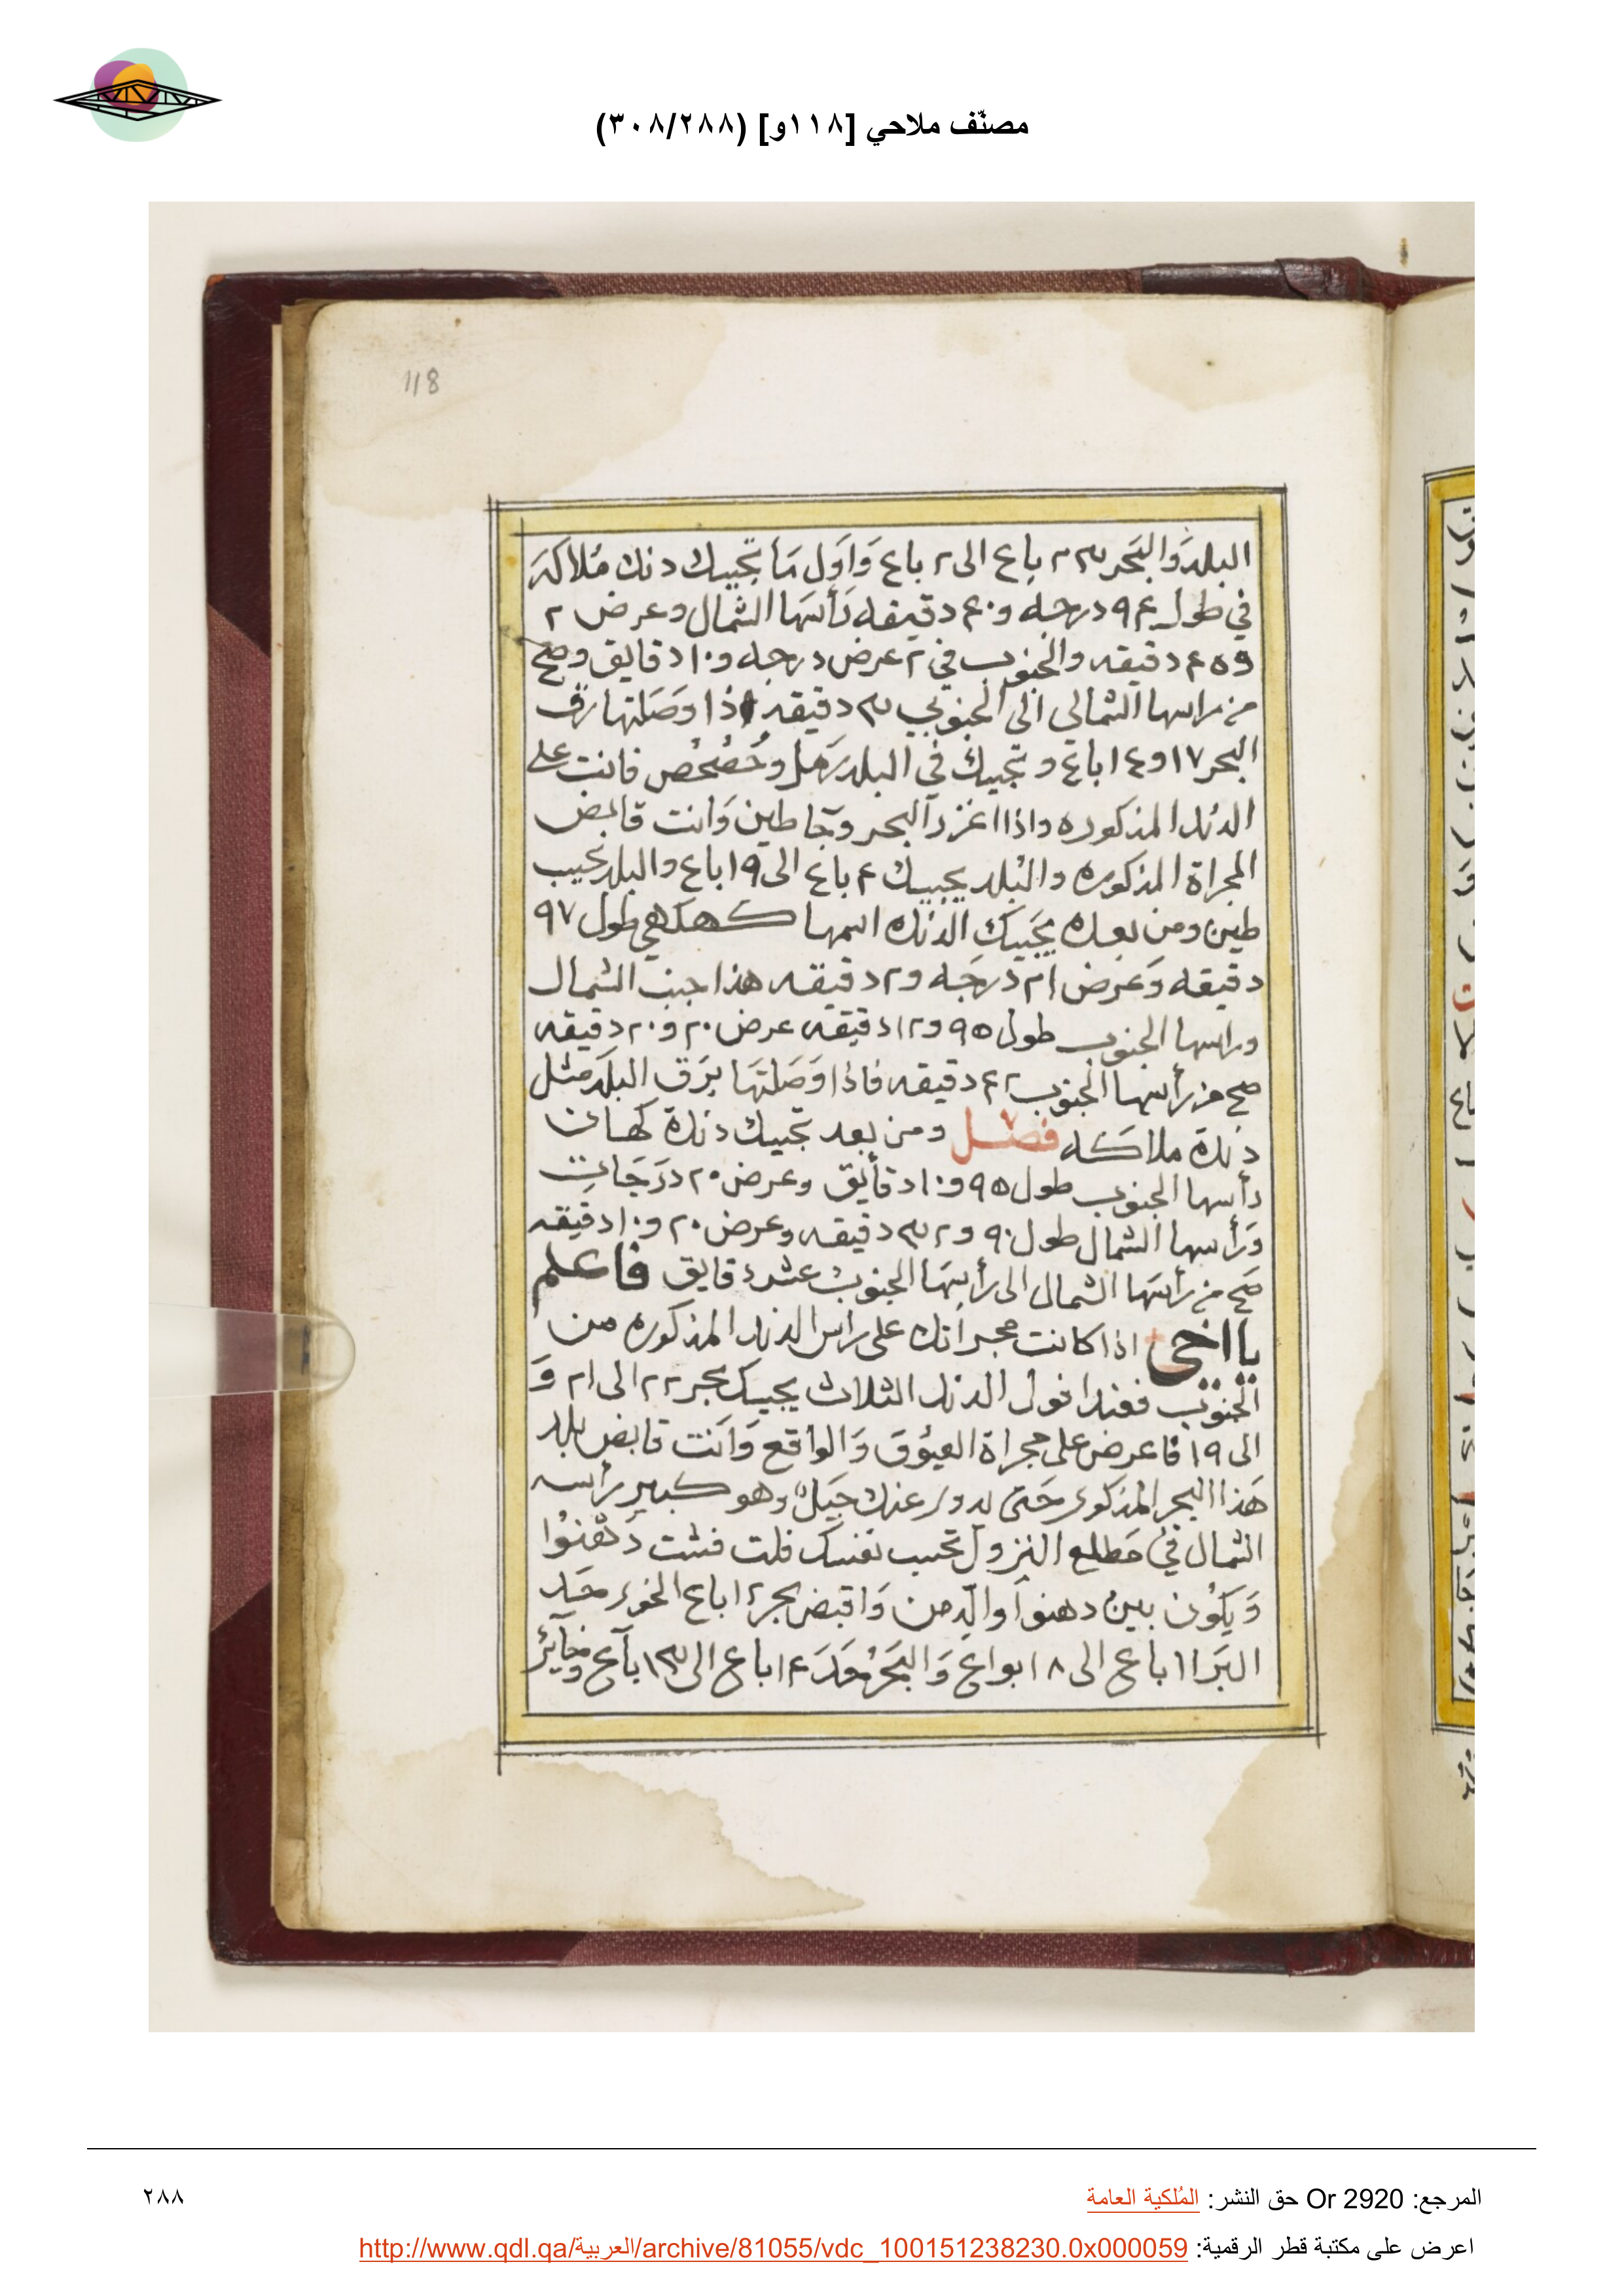 مصنّف ملاحي [١١٨و] (٣٠٨/٢٨٨)
118
البلد وَالبَحر باع الى ٢ باع وَاوَل مَا تجيبك دنك مُلاكه
في طول ٩٤ درجه و٤٠ دقيقه رَأسَها الشمال وعرض ٢
و٤٥ دقيقه والجنوب في ٢ عرض درجه و١٠ دقايق وصح
من راسها الشمالى الى الجنوبي ٣ دقيقه اذا وَصَلتها رق
البحر ١٧ و١٤ باع وتجيبك في البلد رَمل وحُصْحُص فانت على
الدنك المذكوره واذا اغزر البحر وجا طين وَانت قابض
المجراة المذكوره والبُلد يجيبك ٤ باع الى ١٩ باع والبلد تجيب
طين ومن بعده تجَيبَك الدنك اسمها كهك في طول ٩٧
دقيقه وَعَرض ٢١ درجَه و٢ دقيقه هذا جنب الشمال
وراسها الجنوب طول ٩٥ و١٢ دقيقه عرض ٢٠ و٢٠ دقيقه
صح من رأسها الجنوب ٤٢ دقيقه فاذا وَصَلتَها يرَق البلَد مثل
دنكة ملاكَه فصل ومن بعد تجيبك دنكة كهات
رأسها الجنوب طول ٩٥ و١٠ دقايق وعرض ٢٠ درَجَات
وَرَأسها الشمال طول ٩٠ و٣٢ دقيقه وعرض ٢٠ و١٠ دقيقه
صَح من رأسَها الشمال الى رأسِهَا الجنوب عشر دقايق فاعلم
يا اخي اذا كانت مجراتك على راس الدنك المذكوره من
الجنوب فعند افول الدنك الثلاث يجيبك بحر ٢٢ الى ٢١ وَ
الى ١٩ فاعرض على مجراة العيُّوق وَالواقع وَانت قابض بلد
هَذا البحر المذكور حَتى يدور عنك جبَل وهو كبير رأسه
الشمال في مَطلع النزول تحسب نفسك فلت فشت دَهْنُوا
وَيَكُون بين دهنوا وَالدِّمن وَاقبض بحر ١٢ باع الخور حَد
البَرا ١١ باع الى ١٨ ابواع وَالبَحْر حَدَ ١٤ باع الى ١٣ باع وَجَايز
المرجع: Or 2920 حق النشر: المُلكية العامة
٢٨٨
اعرض على مكتبة قطر الرقمية: http://www.qdl.qa/العربية/archive/81055/vdc_100151238230.0x000059